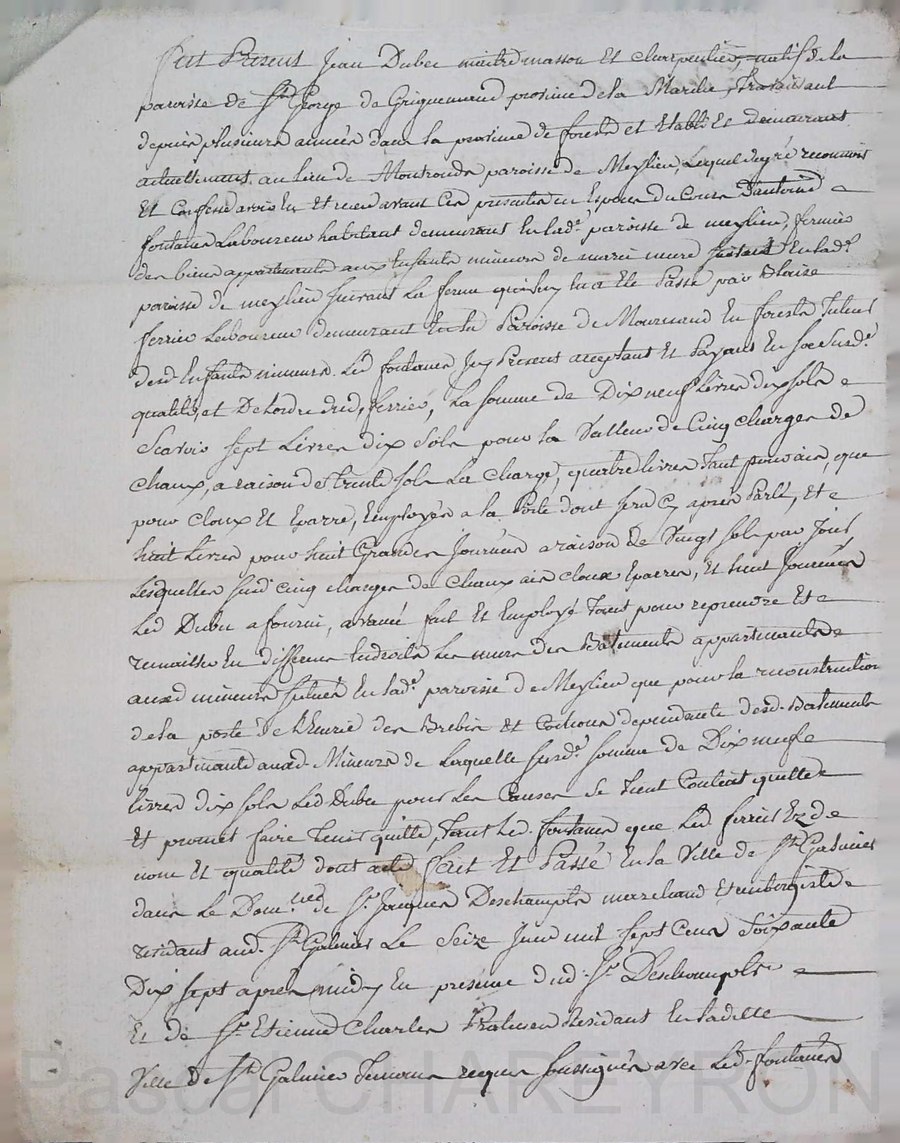 Fut Présent Jean Dubec maitre masson et charpentier, natif de la
paroisse de St George de Grignemand provinse dela Marche, travaillant
depuis plusieurs années dans la provinse de forests et Etabli Et demeurant
actuellement au lieu de Montronds paroisse de Meylieu, Lequel de gré reconnoit
Et Confesse avoir Eu Et receu avant Ces présentes en Espèces du Cours D'antoine
fontanes Laboureur habitant demeurant En lad.e paroisse de meylieu, fermier
des biens appartenants aux Enfants mineurs de marie mure en lad.e
paroisse de meylieu suivant La ferme quil luy En a Eté Passé par Blaise
ferrier Laboureur demeurant En la Paroisse de Mournand En forests Tuteur
desd Enfants mineurs Led fontanes Icy Présent aceptant Et Payant En Sa Susd.e
qualité, et De Lordre dud, ferrier, La somme de Dix neuf Livres dix sols
Scavoir sept Livres dix Sols pour la Valleur de Cinq charges de
chaux, a raison de trente sols La charge, quatre livres tant pour ais, que
pour cloux Et Eparre, Employés a la Porte dont sera Cy après Parlé, Et
huit Livres pour huit Grandes Journées a raison de Vingt sols par Jour
Lesquelles susd cinq charges de Chaux ais cloux Eparres, Et huit Journées
Led Dubec a fourni, avancé fait Et Employé Tant pour reprendre Et
remaitre En differents Endroits Les murs des Batiments appartenants
auxd mineurs situés En lad.e paroisse de Meylieu que pour la reconstruction
dela porte de L'Ecurie des Brebis Et Cochons dependante desd. Batiments
appartenants auxd. Mineurs de Laquelle susd.e somme de Dix neufe
livres dix sols Led Dubec pour Les Causes Se tient Contant quitte
Et promet faire Tenir quitte, tant Led. fontanes que Led ferrier Ez d
nom Et qualité dont acte Fait Et Passé En la Ville de St Galmier
dans Le Dom.cile de Sr. Jacques Deschamps marchand Et aubergiste
residant aud. St Galmier Le Seize Juin mil sept Cens Soixante
Dix sept après midy En présence dud. Sr. Deschamps
Et de Sr. Etienne Charles Residant En laditte
Ville de St Galmier Temoins requis soussignés avec Led. fontanes
Pascal CHAREYRON